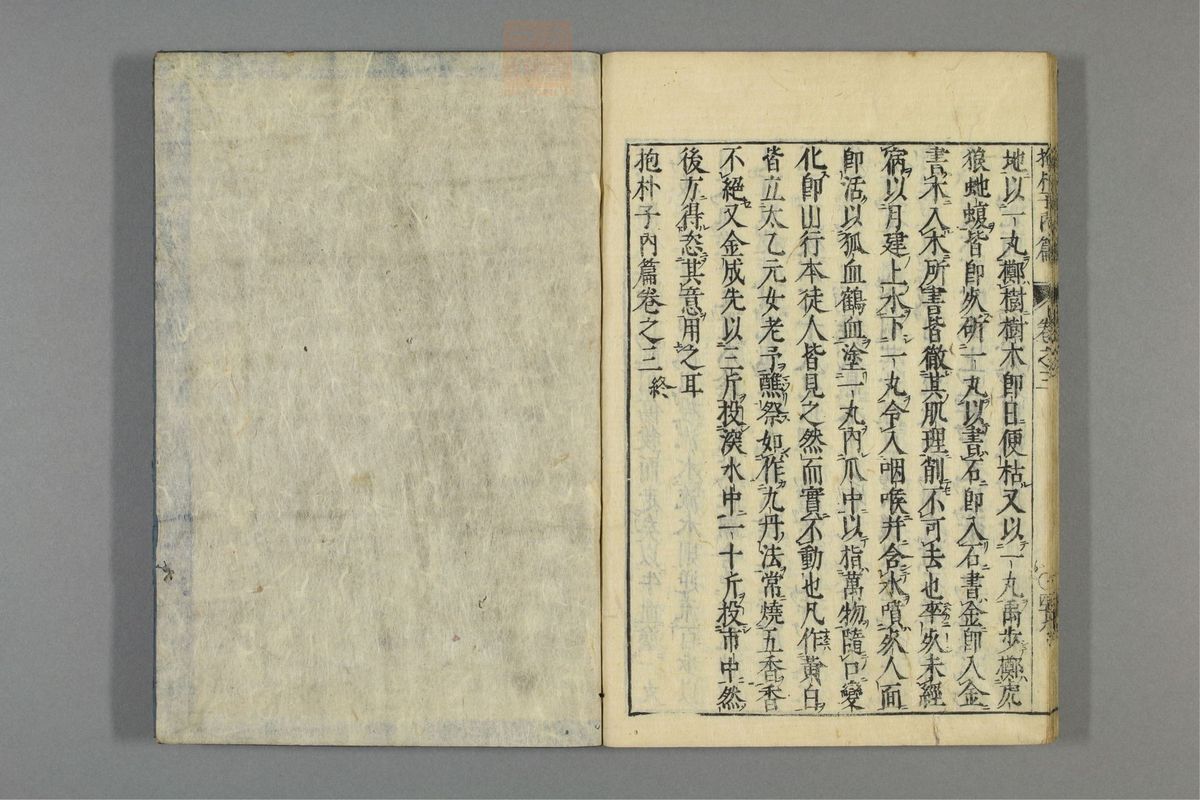 地以一丸擲樹樹木即日便枯又以一丸禹步擲虎
狼虵蝮皆即死斫一丸以書石即入石書金即入金
書木入木所書皆徹其肌理削不可去也卒死未經
病以月建上水下一丸令入咽喉并含水噴死人面
即活以狐血鶴血塗一丸內爪中以指萬物隨口變
化即山行木徒人皆見之然而實不動也凡作黃白
皆立太乙元女老子醮祭如作九丹法常燒五香香
不絕又金成先以三斤投深水中一十斤投市中然
後方得恣其意用之耳
抱朴子內篇卷之三 終
抱朴子內篇 卷之三